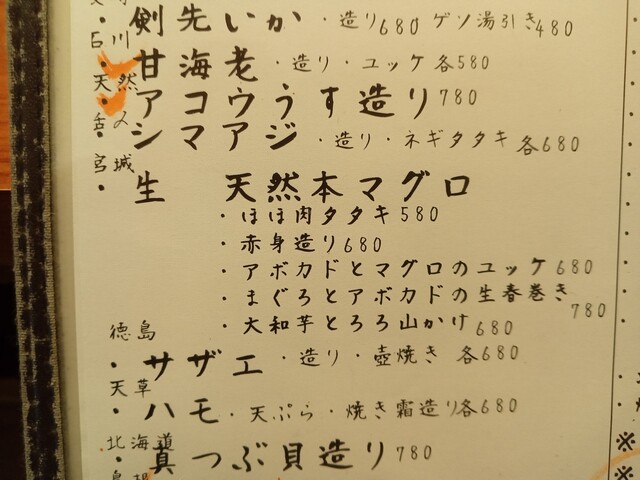 石川
剣先いか ・造り680 ゲソ湯引き480
・甘海老 ・造り・ユッケ各580
天然
・アコウうす造り780
・シマアジ ・造り・ネギタタキ 各680
宮城
・生 天然本マグロ
・ほほ肉タタキ580
・赤身造り680
・アボカドとマグロのユッケ680
・まぐろとアボカドの生春巻き
780
・大和芋とろろ山かけ680
徳島
・サザエ ・造り・壺焼き 各680
天草
・ハモ・天ぷら・焼き霜造り各680
北海道
・真つぶ貝造り780
※
※